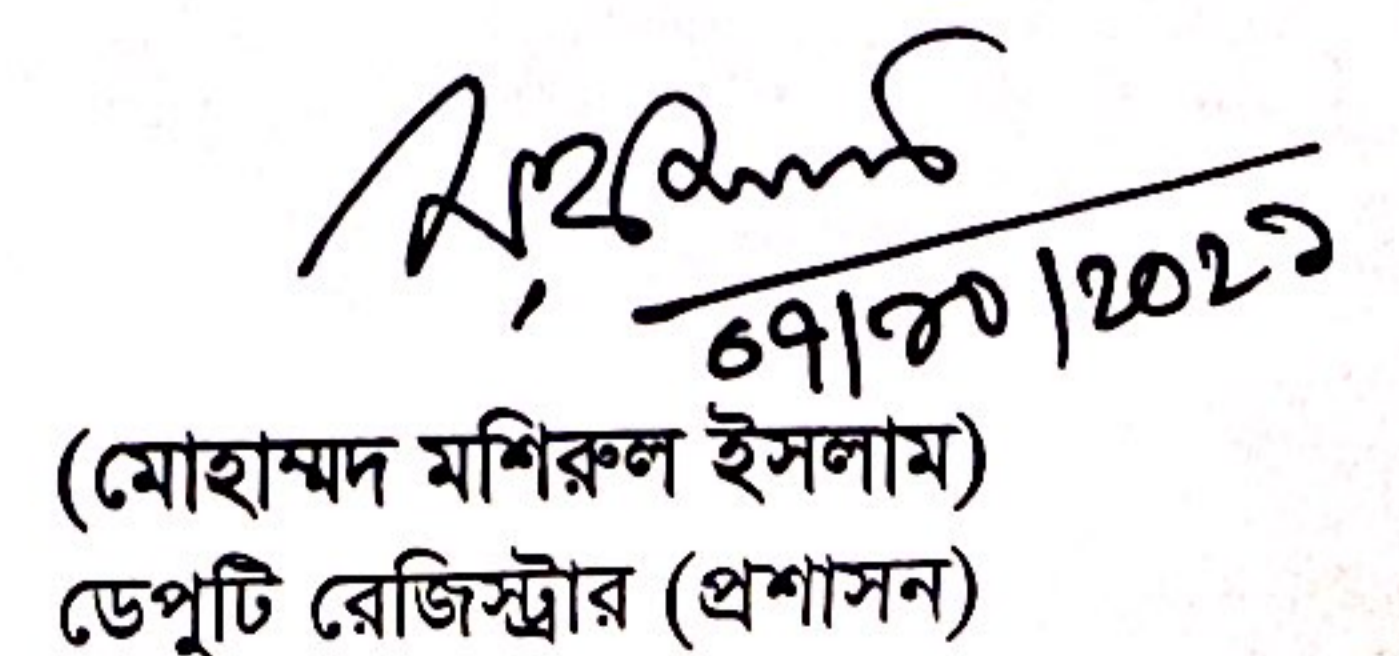 ০৭/১০/২০২১
(মোহাম্মদ মশিরুল ইসলাম)
ডেপুটি রেজিস্ট্রার (প্রশাসন)